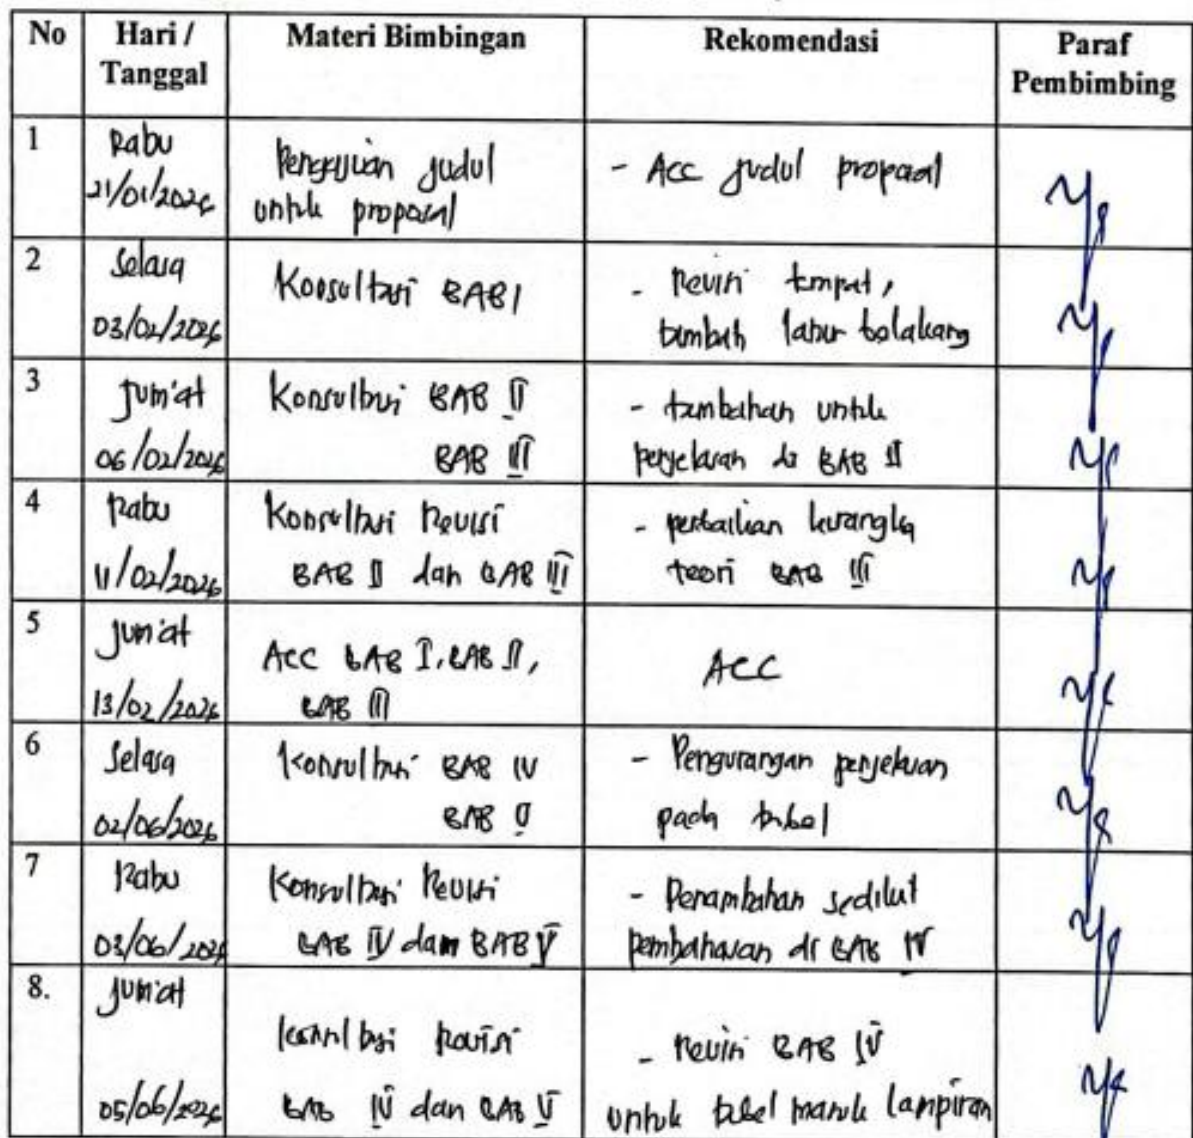 No Hari / Tanggal Materi Bimbingan Rekomendasi Paraf Pembimbing
1 Rabu 21/01/2026 Pengajuan judul untuk proposal - ACC judul proposal
2 Selasa 03/02/2026 Konsultasi BAB I - Revisi tempat, tambah latar belakang
3 Jum'at 06/02/2026 Konsultasi BAB II BAB III - tambahan untuk penjelasan di BAB II
4 Rabu 11/02/2026 Konsultasi Revisi BAB II dan BAB III - perbaikan kerangka teori BAB III
5 Jum'at 13/02/2026 ACC BAB I, BAB II, BAB III ACC
6 Selasa 02/06/2026 Konsultasi BAB IV BAB V - Pengurangan penjelasan pada tabel
7 Rabu 03/06/2026 Konsultasi Revisi BAB IV dan BAB V - Penambahan sedikit pembahasan di BAB IV
8. Jum'at 05/06/2026 Konsultasi Revisi BAB IV dan BAB V - Revisi BAB IV untuk tabel masuk lampiran